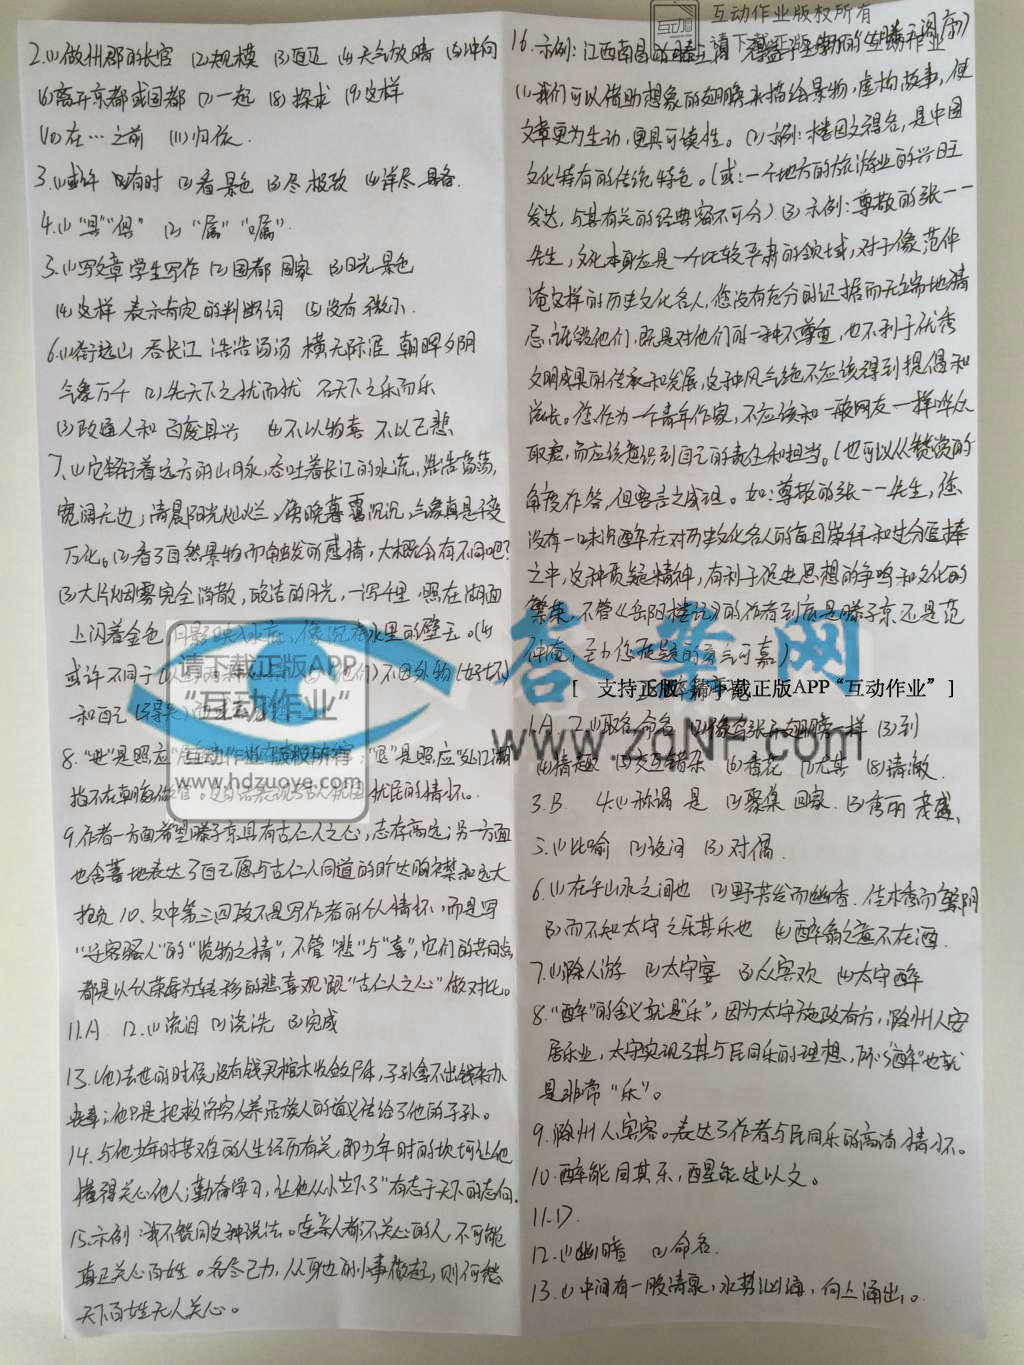 互动作业版权所有
2.(1)做州郡的长官 (2)规模 (3)迫近 (4)天气放晴 (5)冲向
(6)离开京都或国都 (7)一起 (8)探求 (9)这样
(10)在…之前 (11)归依.
3.(1)或许 (2)有时 (2)看 景色 (3)尽 极致 (4)详尽 具备.
4.(1)“具”“俱” (2)“属”“嘱”.
5.(1)写文章 学生写作 (2)国都 国家 (3)日光 景色
(4)这样 表示肯定的判断词 (5)没有 微小.
6.(1)衔远山 吞长江 浩浩汤汤 横无际涯 朝晖夕阴
气象万千 (2)先天下之忧而忧 后天下之乐而乐
(3)政通人和 百废具兴 (4)不以物喜 不以己悲
7.(1)它衔着远方的山脉,吞吐着长江的水流,浩浩荡荡,
宽阔无边,清晨阳光灿烂,傍晚暮霭沉沉,气象真是千变
万化。(2)看了自然景物而触发的感情,大概会有不同吧?
(3)大片烟雾完全消散,皎洁的月光,一泻千里,照在湖面
上闪着金色
或许不同于 不因外物(好坏)
和自己(得失)
请下载正版APP
“互动作业”
www.hdzuoye.com
8.
忧民的情怀.
9.作者一方面希望滕子京具有古仁人之心,志存高远;另一方面
也含蓄地表达了自己愿与古仁人同道的旷达胸襟和远大
抱负 10.文中第三四段不是写作者的个人情怀,而是写
“迁客骚人”的“览物之情”,不管“悲”与“喜”,它们的共同点
都是以个人荣辱为转移的悲喜观,跟“古仁人之心”做对比。
11.A 12.(1)流泪 (2)浇洗 (3)完成
13.(他)去世的时候,没有钱买棺木收敛尸体,子孙拿不出钱来办
丧事;他只是把救济穷人养活族人的道义传给了他的子孙。
14.与他少年时苦难的人生经历有关,即少年时的坎坷让他
懂得关心他人;勤奋学习,让他从小立下了“有志于天下”的志向.
15.示例:我不赞同这种说法。连亲人都不关心的人,不可能
真正关心百姓。各尽己力,从身边的小事做起,则何愁
天下百姓无人关心。
16.示例:江西南昌的滕王阁
(1)我们可以借助想象的翅膀来描绘景物,虚构故事,使
文章更为生动,更具可读性。(2)示例:楼因文得名,是中国
文化特有的传统特色。(或:一个地方的旅游业的兴旺
发达,与其有关的经典密不可分)(3)示例:尊敬的张一一
先生,文化本真应是一个比较严肃的领域,对于像范仲
淹这样的历史文化名人,您没有充分的证据而无端地猜
忌、诋毁他们,既是对他们的一种不尊重,也不利于优秀
文明成果的传承和发展,这种风气绝不应该得到提倡和
滋长。您作为一个青年作家,不应该和一般网友一样哗众
取宠,而应该意识到自己的责任和担当。(也可以从赞赏的
角度作答,但要言之成理。如:尊敬的张一一先生,您
没有一味沉醉在对历史文化名人的盲目崇拜和过分追捧
之中,这种质疑精神,有利于促进思想的争鸣和文化的
繁荣,不管《岳阳楼记》的作者到底是滕子京还是范
仲淹,至少您质疑的勇气可嘉)
答案网
[ 支持正版,请下载正版APP“互动作业”]
www.zqNF.com
1.A 2.(1)取名,命名 (2)像鸟张开翅膀一样 (3)到
(4)情趣 (5)交互错杂 (6)香花 (7)尤其 (8)清澈.
3.B 4.(1)称谓 是 (2)聚集 回家. (3)秀丽 茂盛.
5.(1)比喻 (2)设问 (3)对偶.
6.(1)在乎山水之间也 (2)野芳发而幽香,佳木秀而繁阴
(3)而不知太守之乐其乐也 (4)醉翁之意不在酒.
7.(1)滁人游 (2)太守宴 (3)众宾欢 (4)太守醉
8.“醉”的含义就是“乐”,因为太守施政有方,滁州人安
居乐业,太守实现了其与民同乐的理想,所以“醉”也就
是非常“乐”。
9.滁州人 宾客。表达了作者与民同乐的高尚情怀。
10.醉能同其乐,醒能述以文。
11.D.
12.(1)幽暗 (2)命名.
13.(1)中间有一股清泉,水势汹涌,向上涌出。